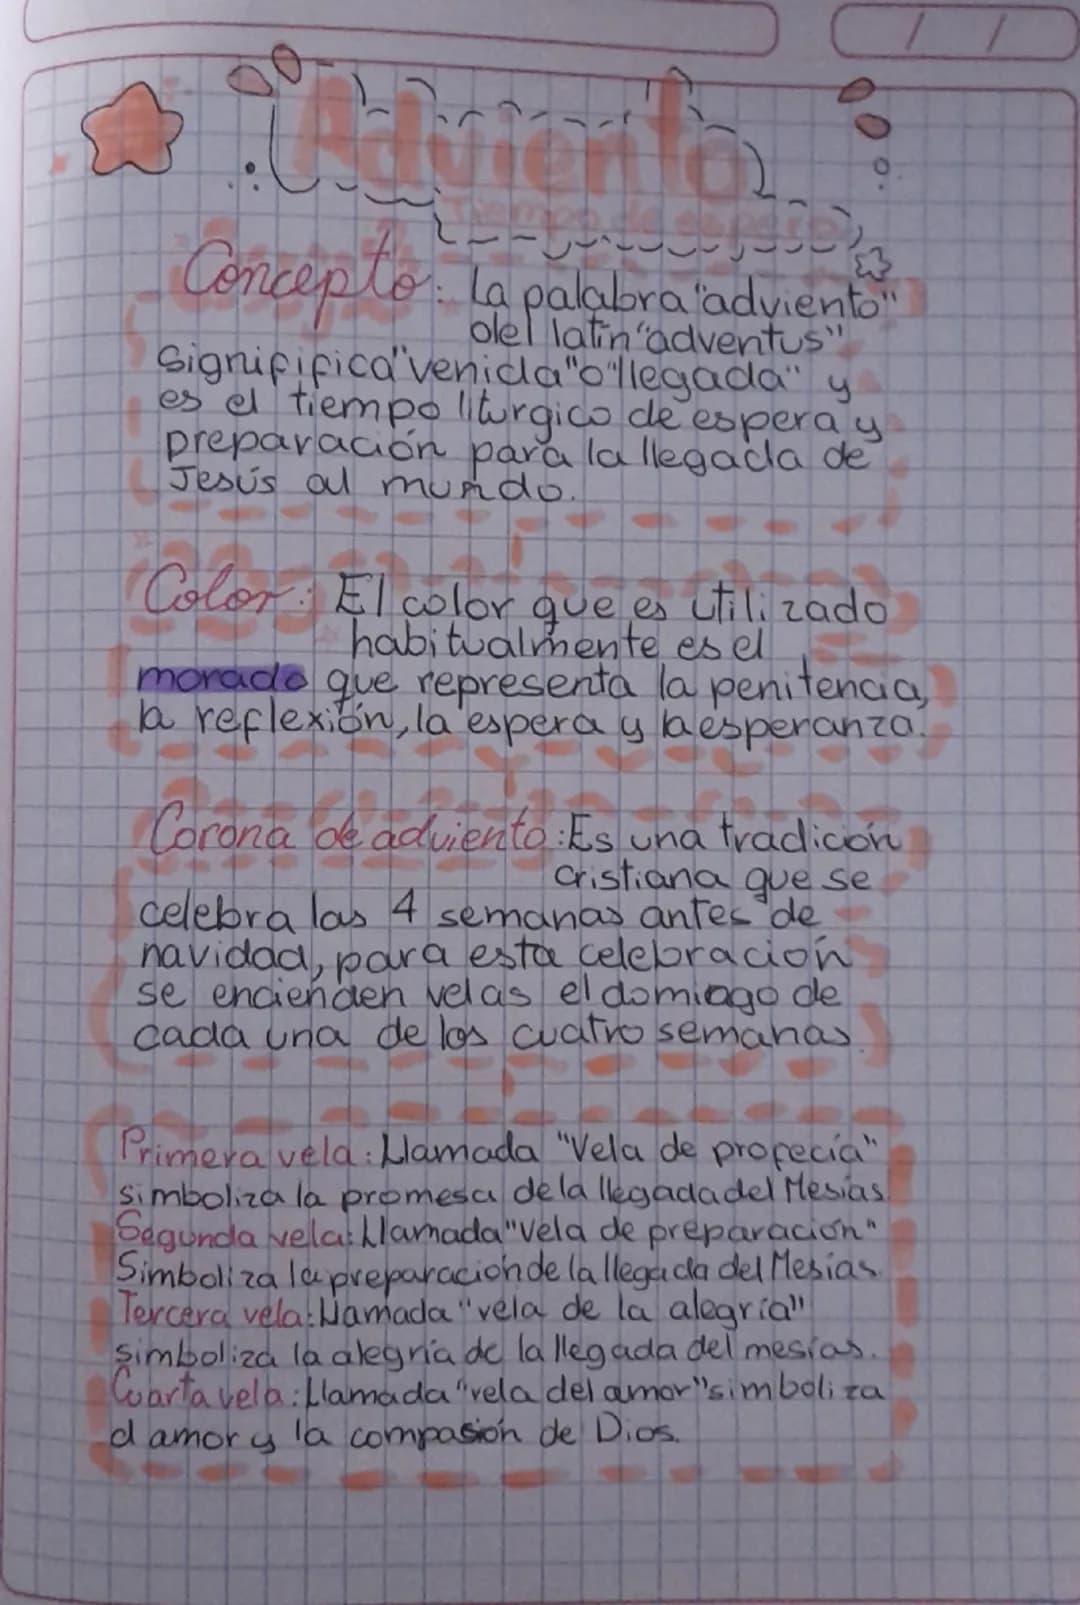 / /
Adviento
Tiempo de espera
Concepto: La palabra "adviento"
del latin "adventus"
signipifica "venida" o "llegada" y
es el tiempo liturgico de espera y
preparación para la llegada de
Jesús al mundo.
Color: El color que es utilizado
habitualmente es el
morado que representa la penitencia,
la reflexión, la espera y la esperanza.
Corona de adviento: Es una tradición
cristiana que se
celebra las 4 semanas antes de
navidad, para esta celebración
se encienden velas el domingo de
cada una de los cuatro semanas.
Primera vela: Llamada "Vela de profecía"
simboliza la promesa de la llegada del Mesías
Segunda vela: Llamada "vela de preparación"
Simboliza la preparación de la llegada del Mesías.
Tercera vela: Llamada "vela de la alegría"
simboliza la alegría de la llegada del mesías.
Cuarta vela: Llamada "vela del amor" simboliza
el amor y la compasión de Dios.